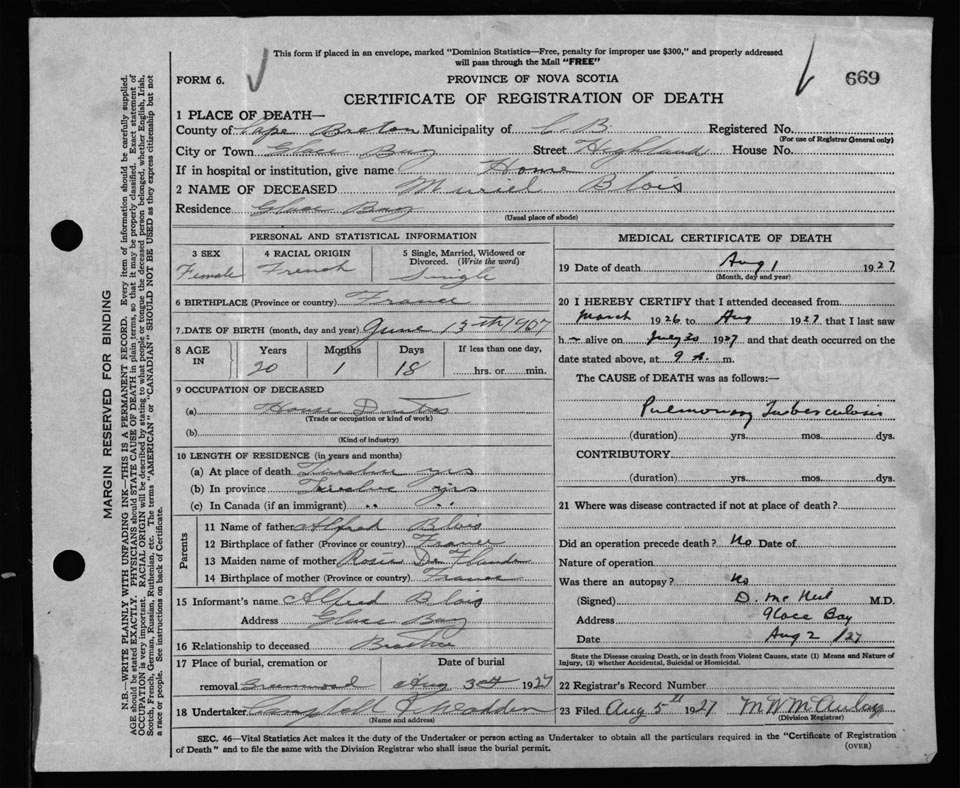 This form if placed in an envelope, marked "Dominion Statistics—Free, penalty for improper use $300," and properly addressed
will pass through the Mail "FREE"
FORM 6.
PROVINCE OF NOVA SCOTIA
669
CERTIFICATE OF REGISTRATION OF DEATH
1 PLACE OF DEATH—
County of Cape Breton Municipality of C. B. Registered No.
(For use of Registrar General only)
City or Town Glace Bay Street Highland House No.
If in hospital or institution, give name Home
2 NAME OF DECEASED Muriel Blois
Residence Glace Bay
(Usual place of abode)
PERSONAL AND STATISTICAL INFORMATION
3 SEX
Female
4 RACIAL ORIGIN
French
5 Single, Married, Widowed or
Divorced. (Write the word)
Single
6 BIRTHPLACE (Province or country) France
7. DATE OF BIRTH (month, day and year) June 13th 1907
8 AGE IN
Years Months Days If less than one day,
20 1 18 hrs. or min.
9 OCCUPATION OF DECEASED
(a) House Duties
(Trade or occupation or kind of work)
(b)
(Kind of industry)
10 LENGTH OF RESIDENCE (in years and months)
(a) At place of death Twelve yrs
(b) In province Twelve yrs
(c) In Canada (if an immigrant) " "
Parents
11 Name of father Alfred Blois
12 Birthplace of father (Province or country) France
13 Maiden name of mother Rosie De
14 Birthplace of mother (Province or country) France
15 Informant's name Alfred Blois
Address Glace Bay
16 Relationship to deceased Brother
17 Place of burial, cremation or Date of burial
removal Greenwood Aug 3rd 1927
18 Undertaker Campbell & Wadden
(Name and address)
MEDICAL CERTIFICATE OF DEATH
19 Date of death Aug 1 1927
(Month, day and year)
20 I HEREBY CERTIFY that I attended deceased from
March 1926 to Aug 1927 that I last saw
h alive on July 30 1927 and that death occurred on the
date stated above, at 9 A. m.
The CAUSE of DEATH was as follows:—
Pulmonary Tuberculosis
(duration) yrs. mos. dys.
CONTRIBUTORY
(duration) yrs. mos. dys.
21 Where was disease contracted if not at place of death?
Did an operation precede death? No Date of
Nature of operation
Was there an autopsy? No
(Signed) D. McNeil M.D.
Address Glace Bay
Date Aug 2 /27
State the Disease causing Death, or in death from Violent Causes, state (1) Means and Nature of
Injury, (2) whether Accidental, Suicidal or Homicidal.
22 Registrar's Record Number
23 Filed Aug 5th 1927 M W McAulay
(Division Registrar)
SEC. 46—Vital Statistics Act makes it the duty of the Undertaker or person acting as Undertaker to obtain all the particulars required in the "Certificate of Registration
of Death" and to file the same with the Division Registrar who shall issue the burial permit.
(OVER)
MARGIN RESERVED FOR BINDING
N.B.—WRITE PLAINLY WITH UNFADING INK—THIS IS A PERMANENT RECORD. Every item of information should be carefully supplied.
AGE should be stated EXACTLY. PHYSICIANS should STATE CAUSE OF DEATH in plain terms, so that it may be properly classified. Exact statement of
OCCUPATION is very important. RACIAL ORIGIN will be described by stating to what people or tongue the deceased person belonged, whether English, Irish,
Scotch, French, German, Russian, Ruthenian, etc. The terms "AMERICAN" or "CANADIAN" SHOULD NOT BE USED as they express citizenship but not
a race or people. See instructions on back of Certificate.